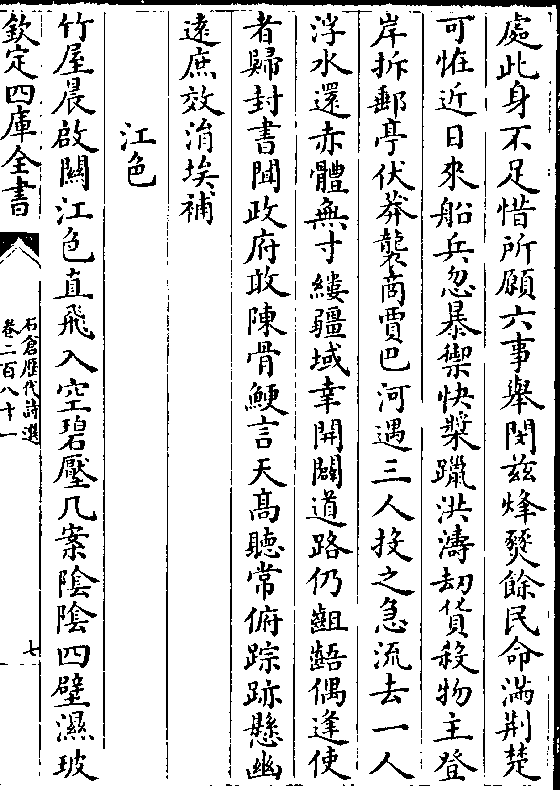 處此身不足惜所願六事舉閔兹烽燹餘民命滿荆楚
可恠近日來船兵忽暴禦快槳躐洪濤刼貨殺物主登
岸拆郵亭伏莽襲商賈巴河遇三人投之急流去一人
浮水還赤體無寸縷疆域幸開闢道路仍齟齬偶逢使
者歸封書闻政府敢陳骨鯁言天髙聽常俯踪跡懸幽
遠庶效涓埃補
江色
竹屋晨啟關江色直飛入空碧壓几案陰陰四壁濕玻
欽定四庫全書
石倉歷代詩選
卷二百八十一
七